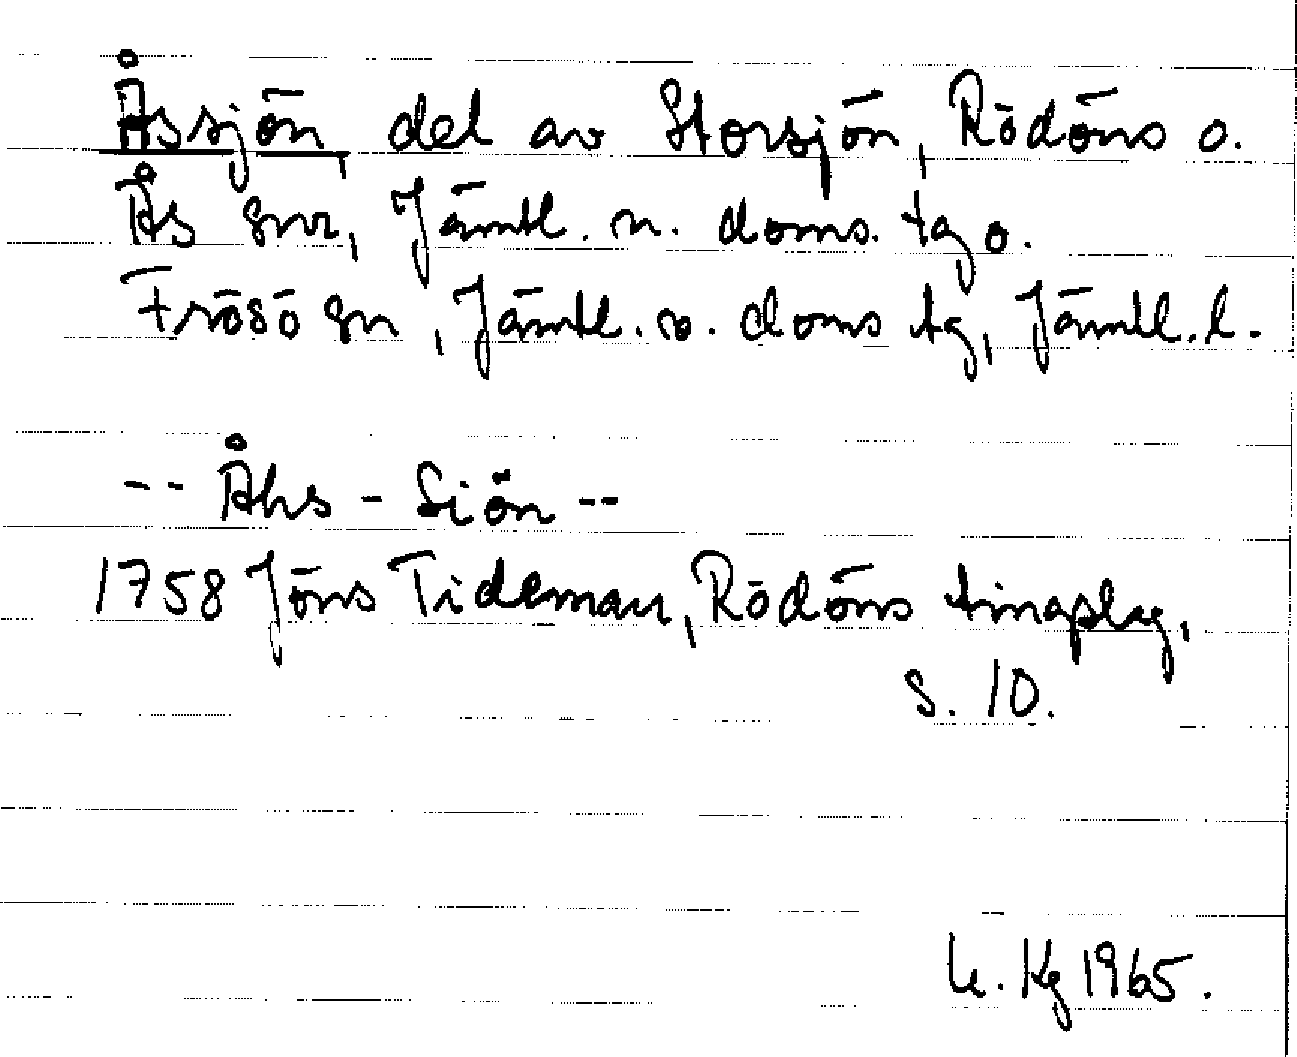 Åssjön, del av Storsjön, Rödöns o.
Ås snr, Jämtl. n. doms. tg o.
Frösö sn, Jämtl. v. doms tg, Jämtl. l.
-- Åhs - Siön --
1758 Jöns Tideman, Rödöns tingsplag,
S. 10.
U. Kg 1965.